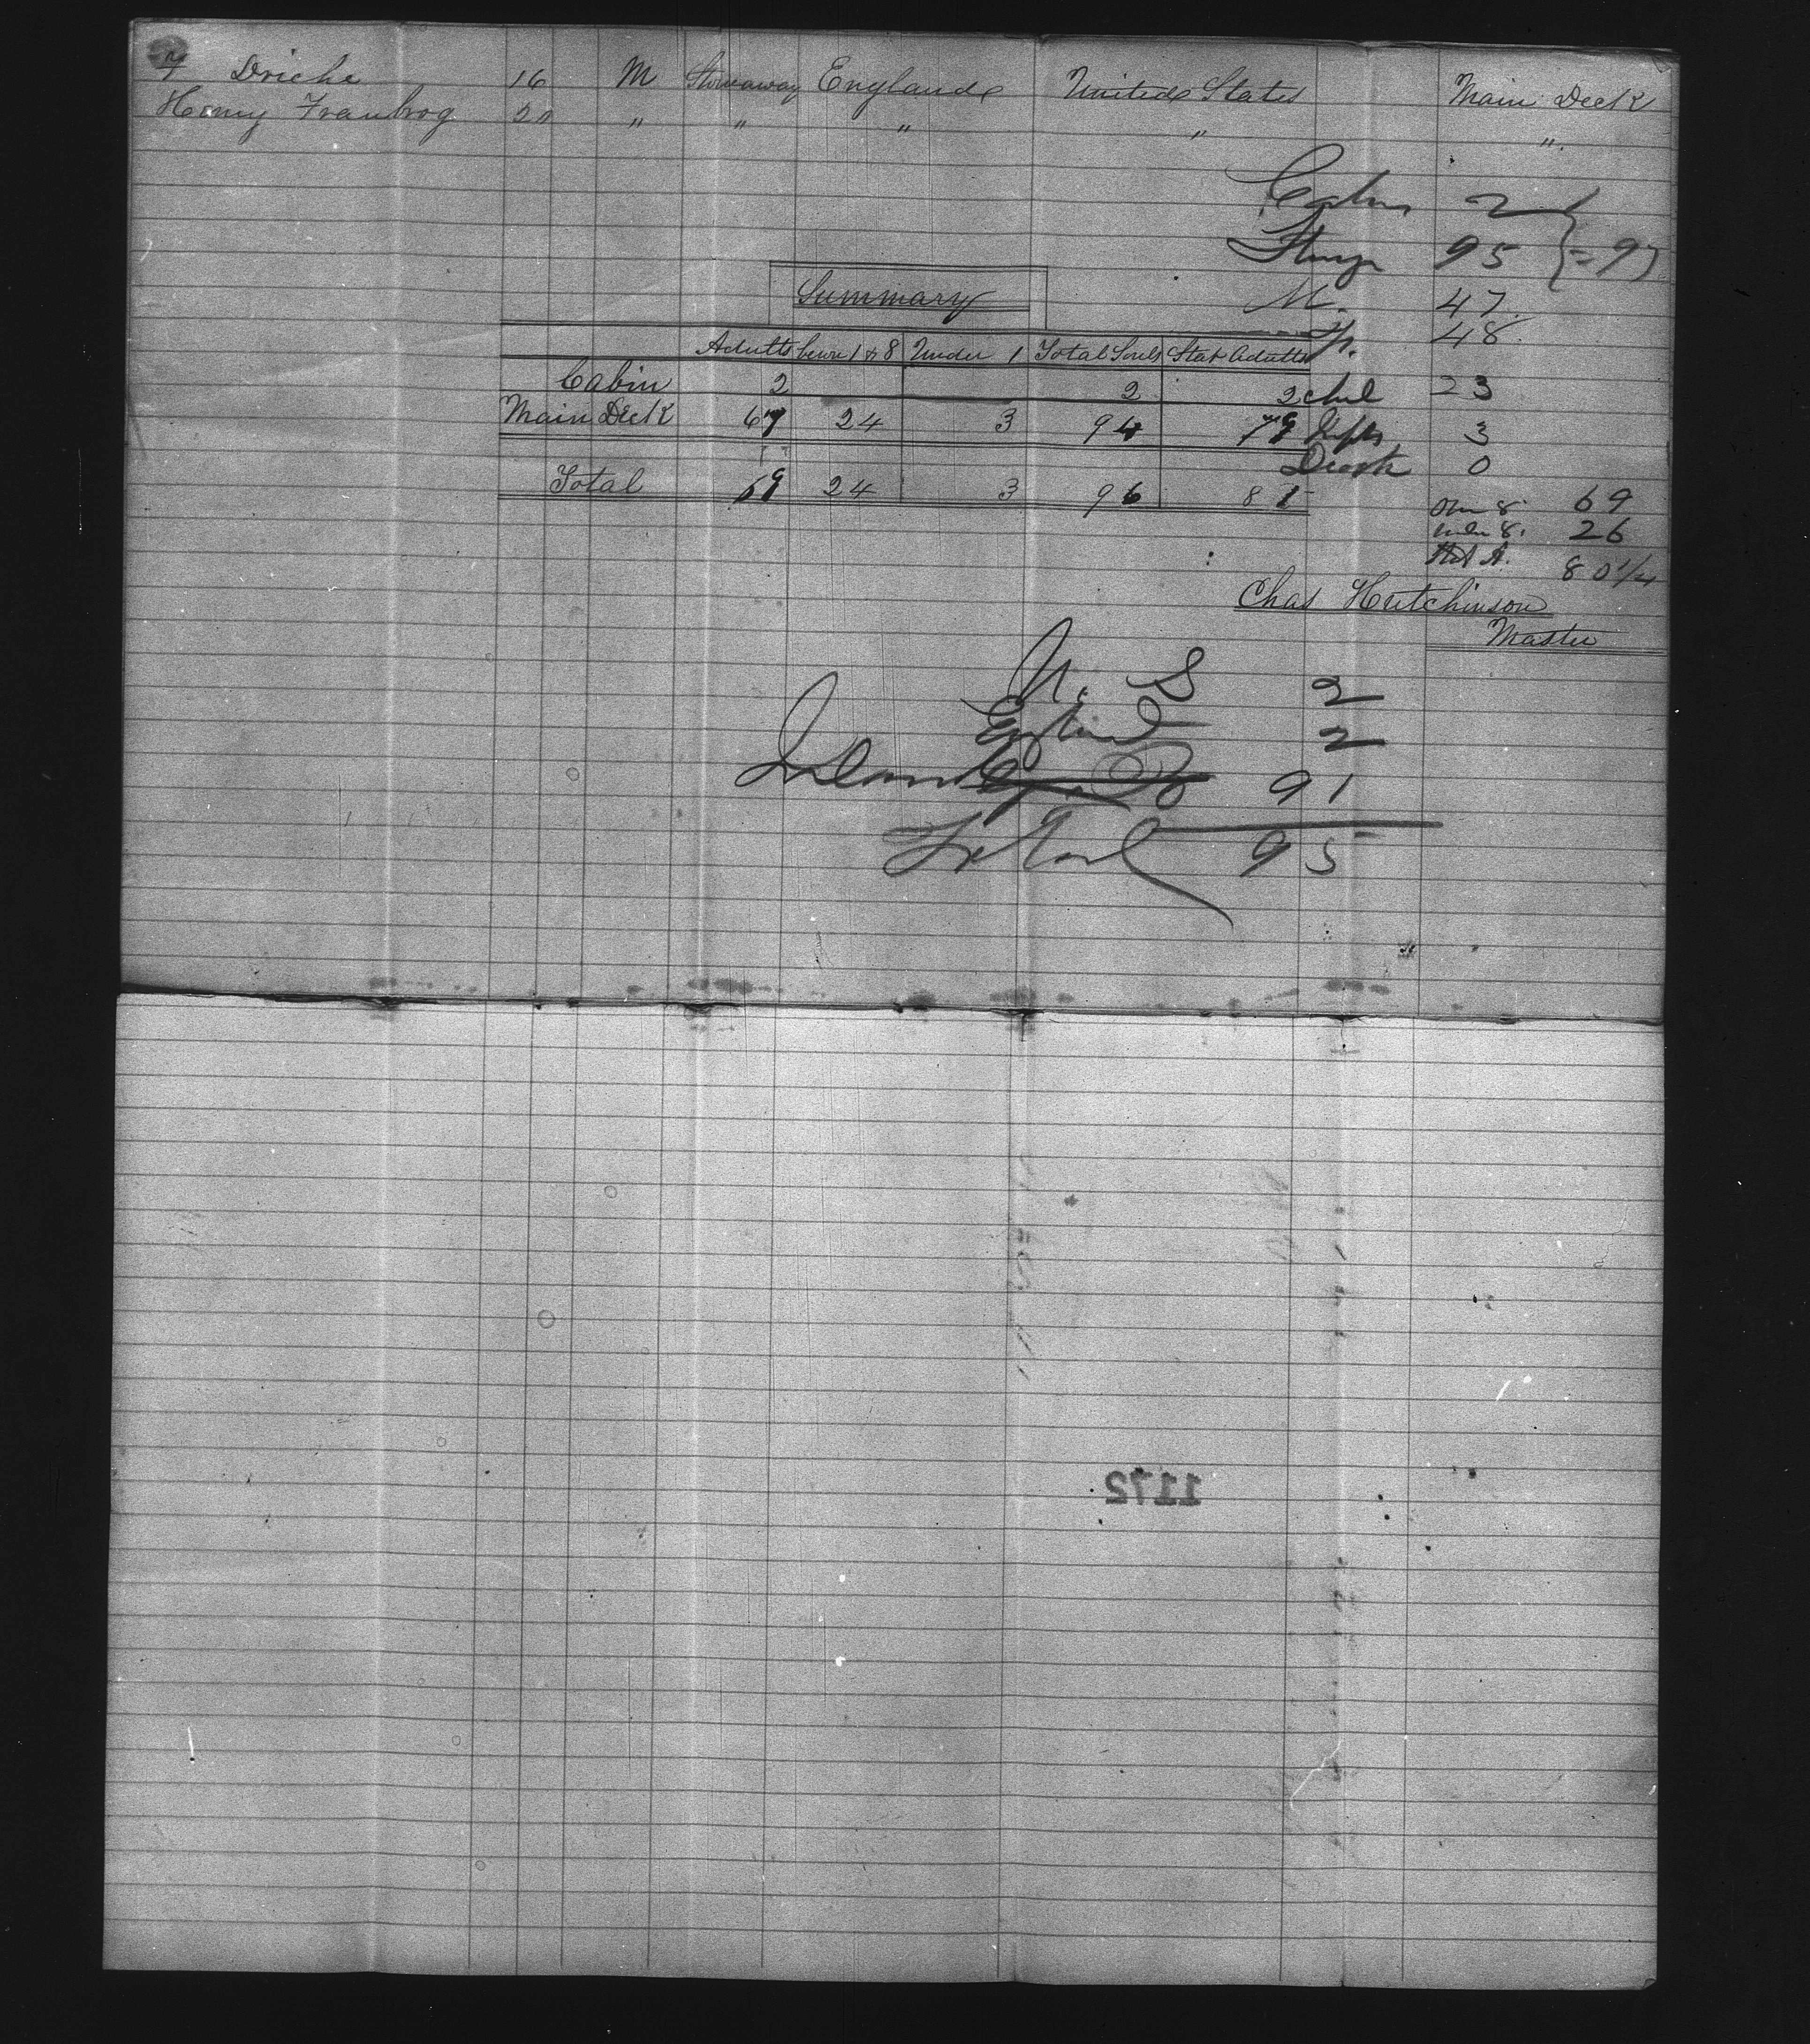 Driche 16 M Stowaway England United States Main Deck
Henry 20 " " " " "
Cabin 2
95 } = 97
Summary
M. 47
F. 48
Adults 1 & 8 Under 1 Total Souls Stat Adults
Cabin 2 2 2
Chil 23
Main Deck 67 24 3 94 79
Infts 3
Death 0
Total 69 24 3 96 81
Over 8 69
under 8. 26
Stat A. 80 1/4
Chas Hutchinson
Master
U. S 2
England 2
Ireland 91
Total 95
1172